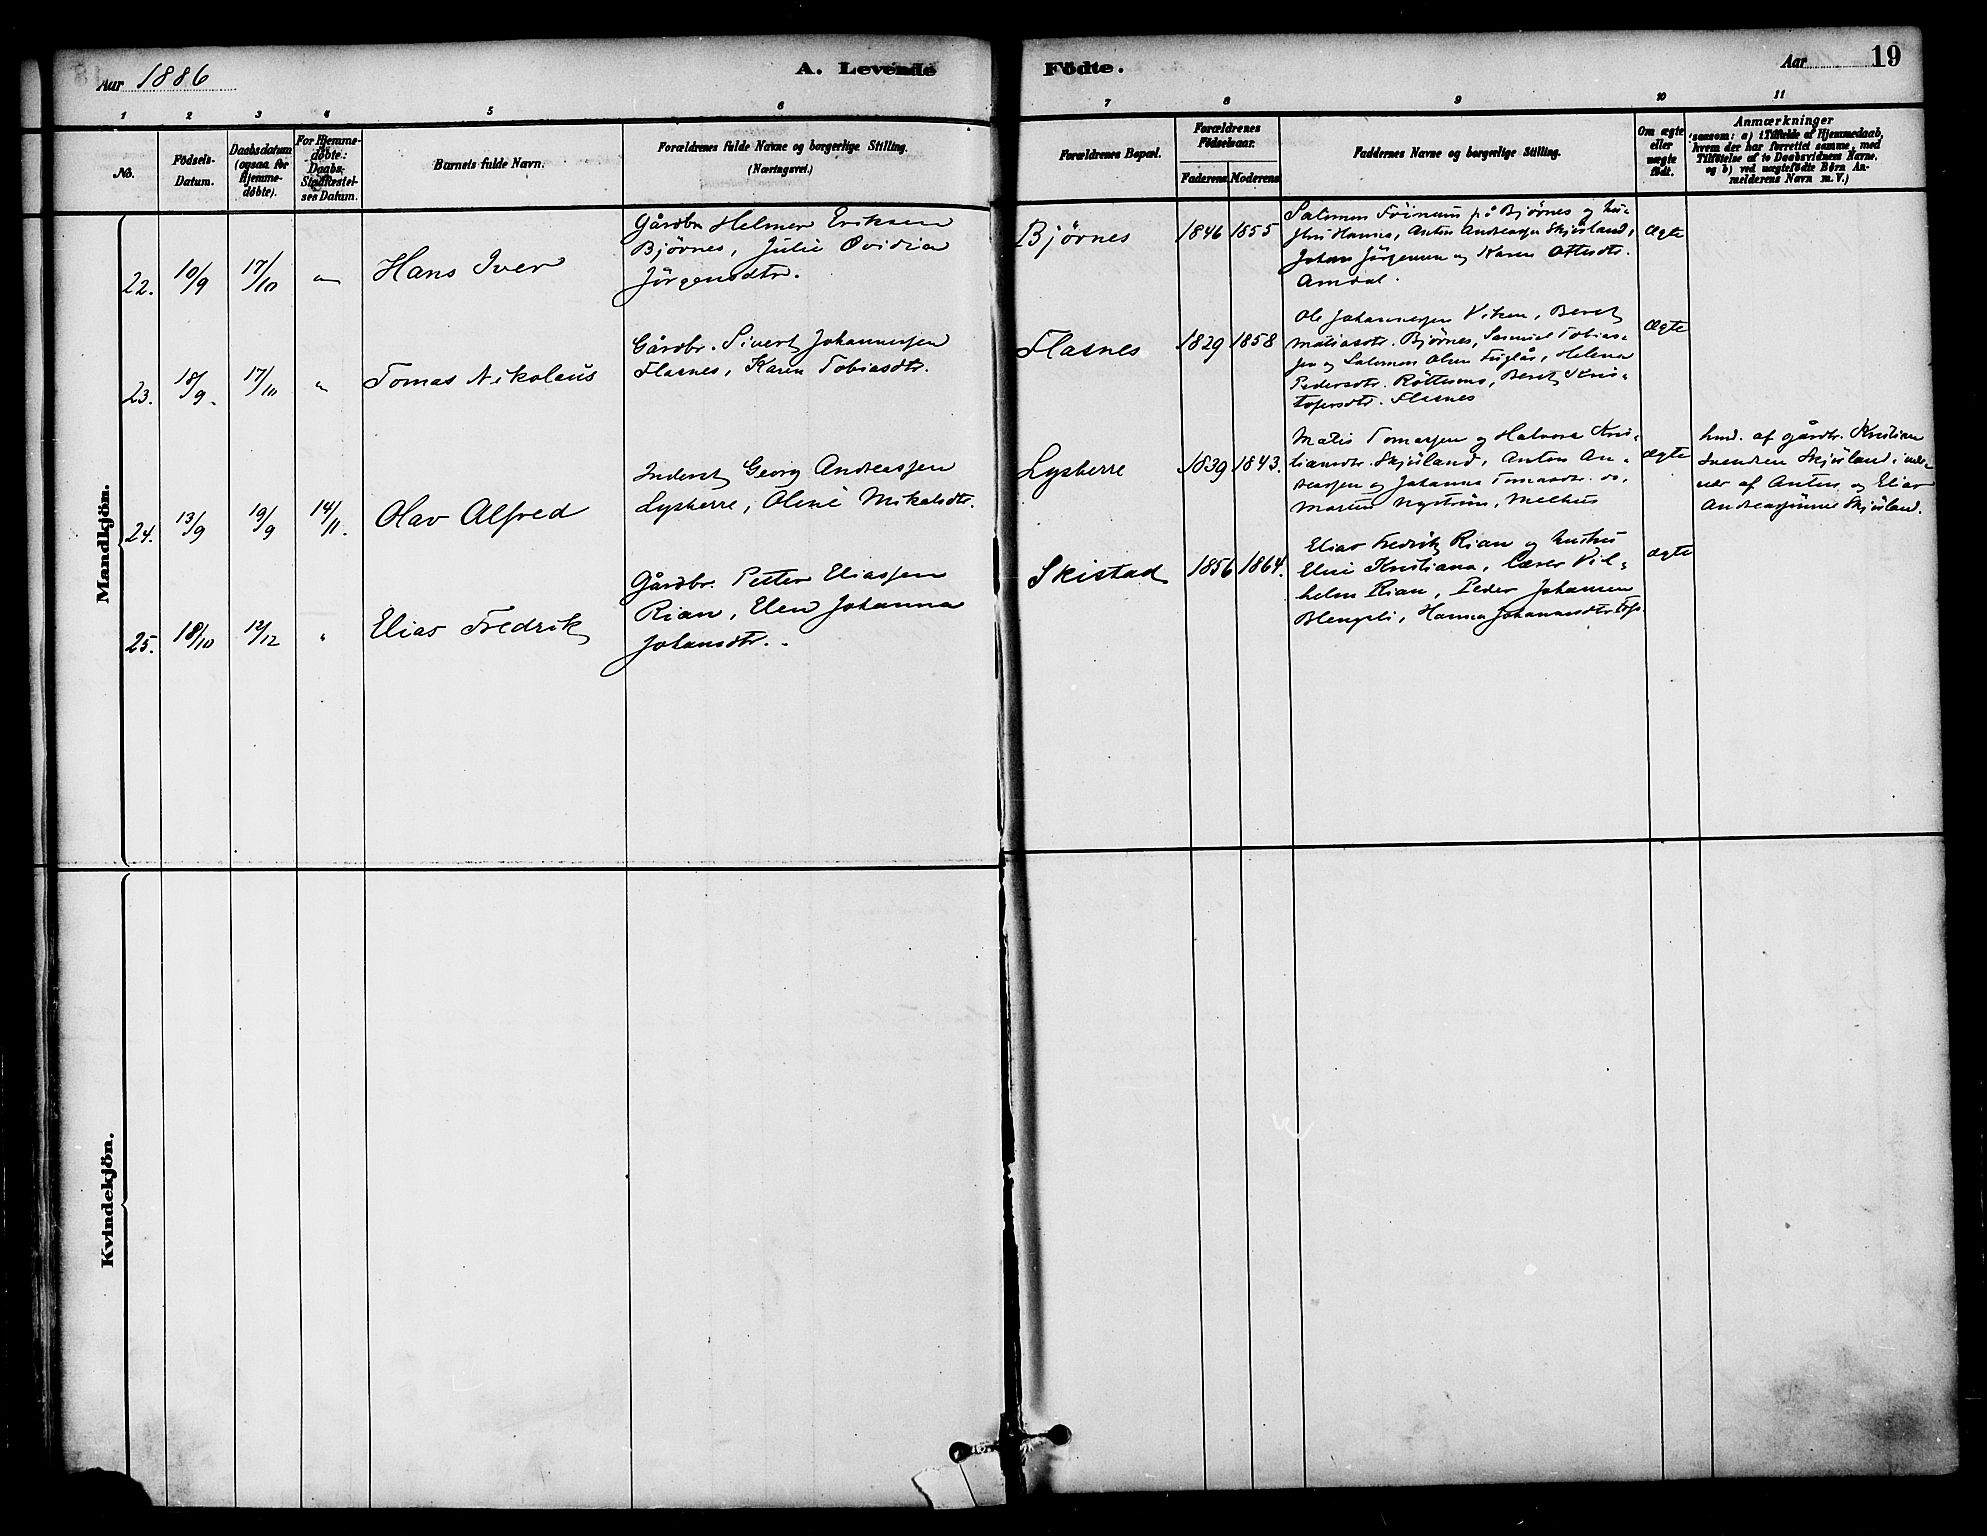 Aar 1886
A. Levende
Födte.
Aar
19
1
2
3
4
5
6
7
8
9
10
11
No.
Födsels-
Datum.
Daabsdatum
(ogsaa for
Hjemme-
döbte).
For Hjemme-
döbte:
Daabs-
Stadfæstel-
ses Datum.
Barnets fulde Navn.
Forældrenes fulde Navne og borgerlige Stilling.
(Næringsvei.)
Forældrenes Bopæl.
Forældrenes
Födselsaar.
Faderens
Moderens
Faddernes Navne og borgerlige Stilling.
Om ægte
eller
uægte
födt.
Anmærkninger
(saasom: a) i Tilfælde af Hjemmedaab,
hvem der har forrettet samme, med
Tilföielse af to Daabsvidners Navne,
og b) ved uægtefödte Börn An-
melderens Navn m. V.)
Mandkjön.
22.
19/9
17/10
"
Hans Iver
Gårdbr. Helmer Eriksen
Bjørnes, Julie Ovidia
Jørgensdtr.
Bjørnes
1846
1855
Salomon på Bjørnes og hu-
stru Hanna, Anton Andreassen Skjesland,
Johan Jørgensen og Karen Ottesdtr.
Amdal.
Ægte
23.
18/9.
17/10
"
Tomas Nikolaus
Gårdbr. Sivert Johannessen
Flasnes, Karen Tobiasdtr.
Flasnes
1829
1858
Ole Johannessen Viken, Beret
Matiasdtr. Bjørnes, Samuel Tobias-
sen og Salomon Olsen Fuglår, Helena
Pedersdtr. Røttesmo, Beret Kris-
tofersdtr. Flasnes
Ægte
24.
13/9
19/9
14/11.
Olav Alfred
Inderst Georg Andreassen
Lysberre, Oline Mikalsdtr.
Lysberre
1839
1843.
Matis Tomassen og Halvora Kris-
tiansdtr. Skjesland, Anton An-
dreassen og Johanna Tomasdtr. ds,
Martin Nystrøm, Melhus
Ægte
hmd. af gårdbr. Kristian
Svendsen Skjesland i nær-
vær af Anton og Elias
Andreassønner Skjesland.
25.
18/10
12/12
"
Elias Fredrik
Gårdbr. Petter Eliassen
Rian, Elen Johanna
Johansdtr.
Skistad
1856
1864.
Elias Fredrik Rian og hustru
Elise Kristiana, Lærer Vil-
helm Rian, Peder Johansen
Blengsli, Hanna Johannesdtr.
Ægte
Kvindekjön.